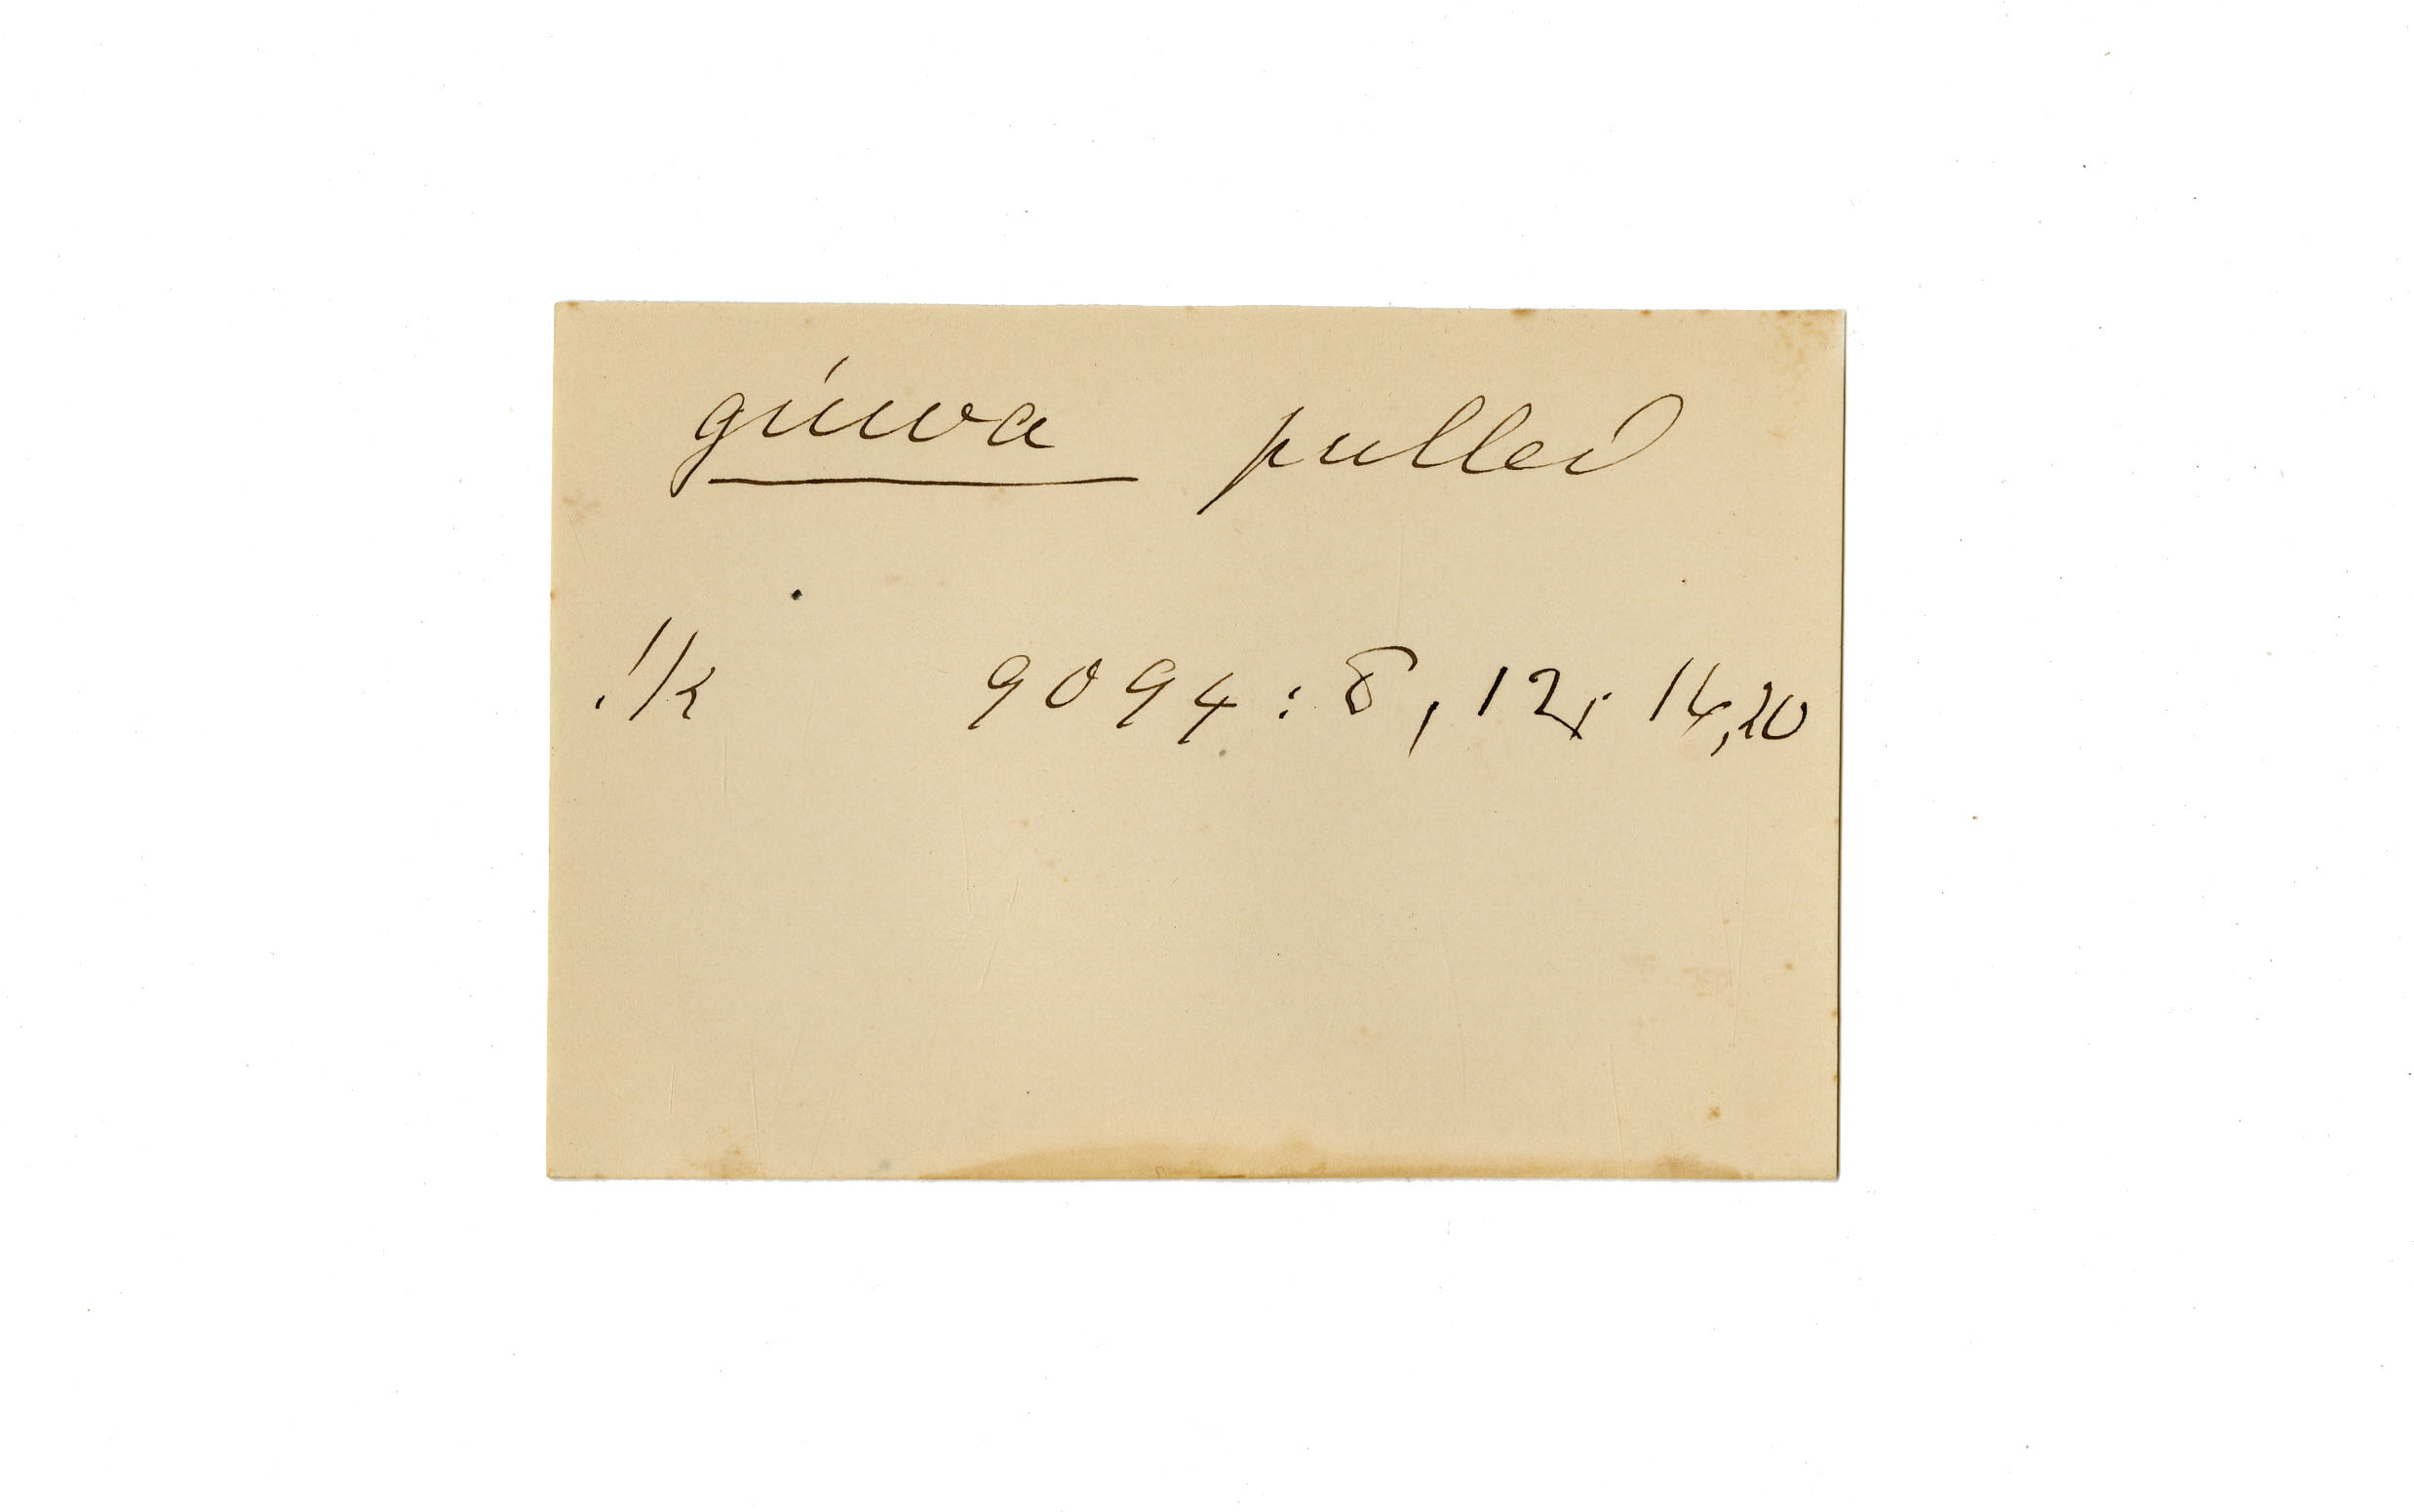 gúwa pulled
!k 9094: 8, 12, 14, 20